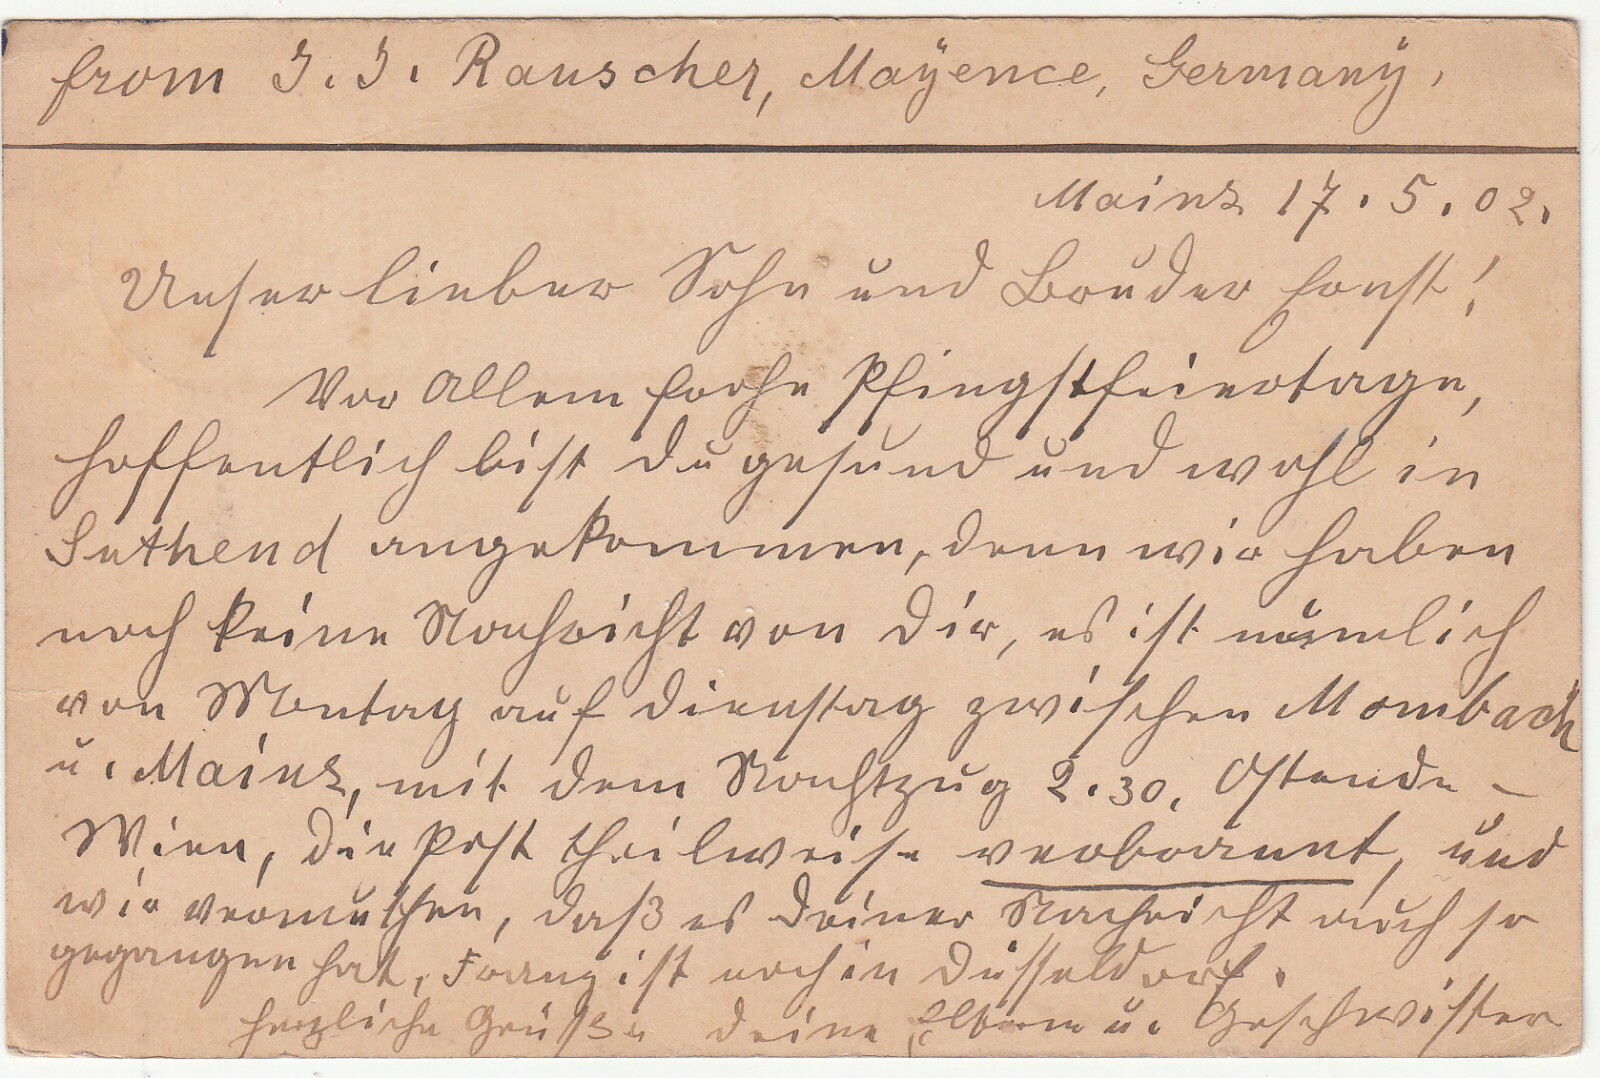 from J. J. Rauscher, Mayence, Germany.
Mainz 17. 5. 02.
Unser lieber Sohn und Bruder Ernst!
Vor Allem frohe Pfingstfeiertage,
hoffentlich bist du gesund und wohl in
Suthend angekommen, denn wir haben
noch keine Nachricht von Dir, es ist nämlich
von Montag auf Dienstag zwischen Mombach
u. Mainz, mit dem Nachtzug 2.30. Ostende –
Wien, die Post theilweise verbrannt, und
wir vermuthen, daß es deiner Nachricht auch so
gegangen hat, Franz ist noch in Düsseldorf.
herzliche Grüße deine Eltern u. Geschwister